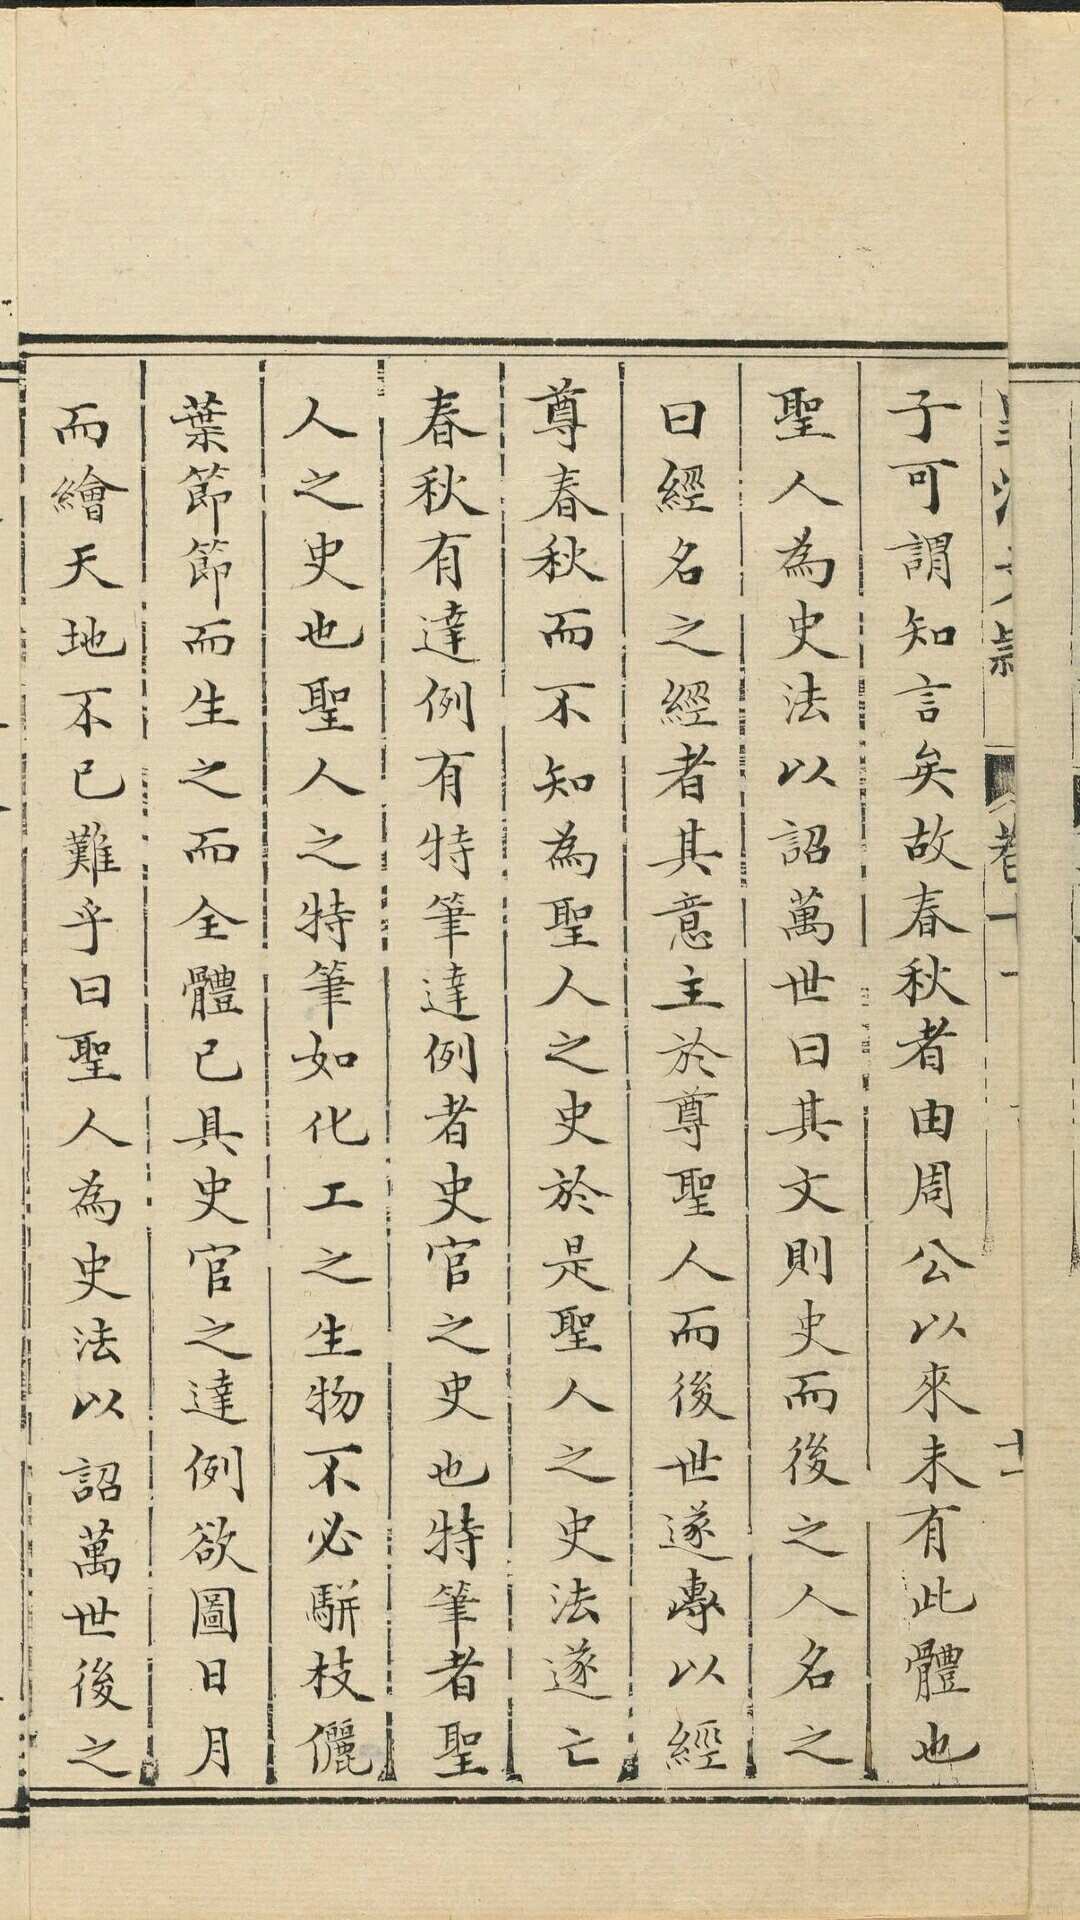 子可謂知言矣故春秋者由周公以來未有此體也
聖人為史法以詔萬世曰其文則史而後之人名之
曰經名之經者其意主於尊聖人而後世遂專以經
尊春秋而不知為聖人之史於是聖人之史法遂亡
春秋有達例有特筆達例者史官之史也特筆者聖
人之史也聖人之特筆如化工之生物不必駢枝儷
葉節節而生之而全體已具史官之達例欲圖日月
而繪天地不已難乎曰聖人為史法以詔萬世後之